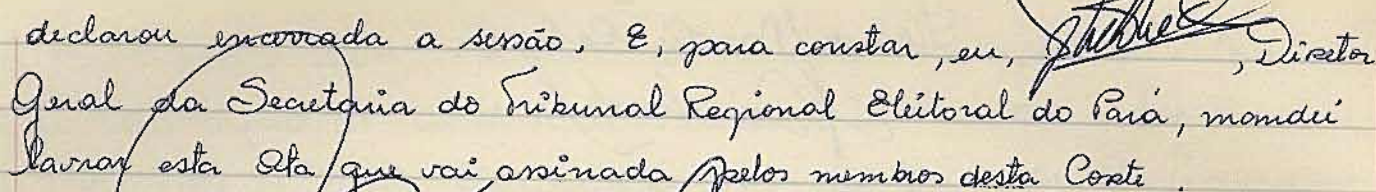 declarou encerrada a sessão. E, para constar, eu, , Diretor
Geral da Secretaria do Tribunal Regional Eleitoral do Pará, mandei
lavrar esta Ata que vai assinada pelos membros desta Corte.